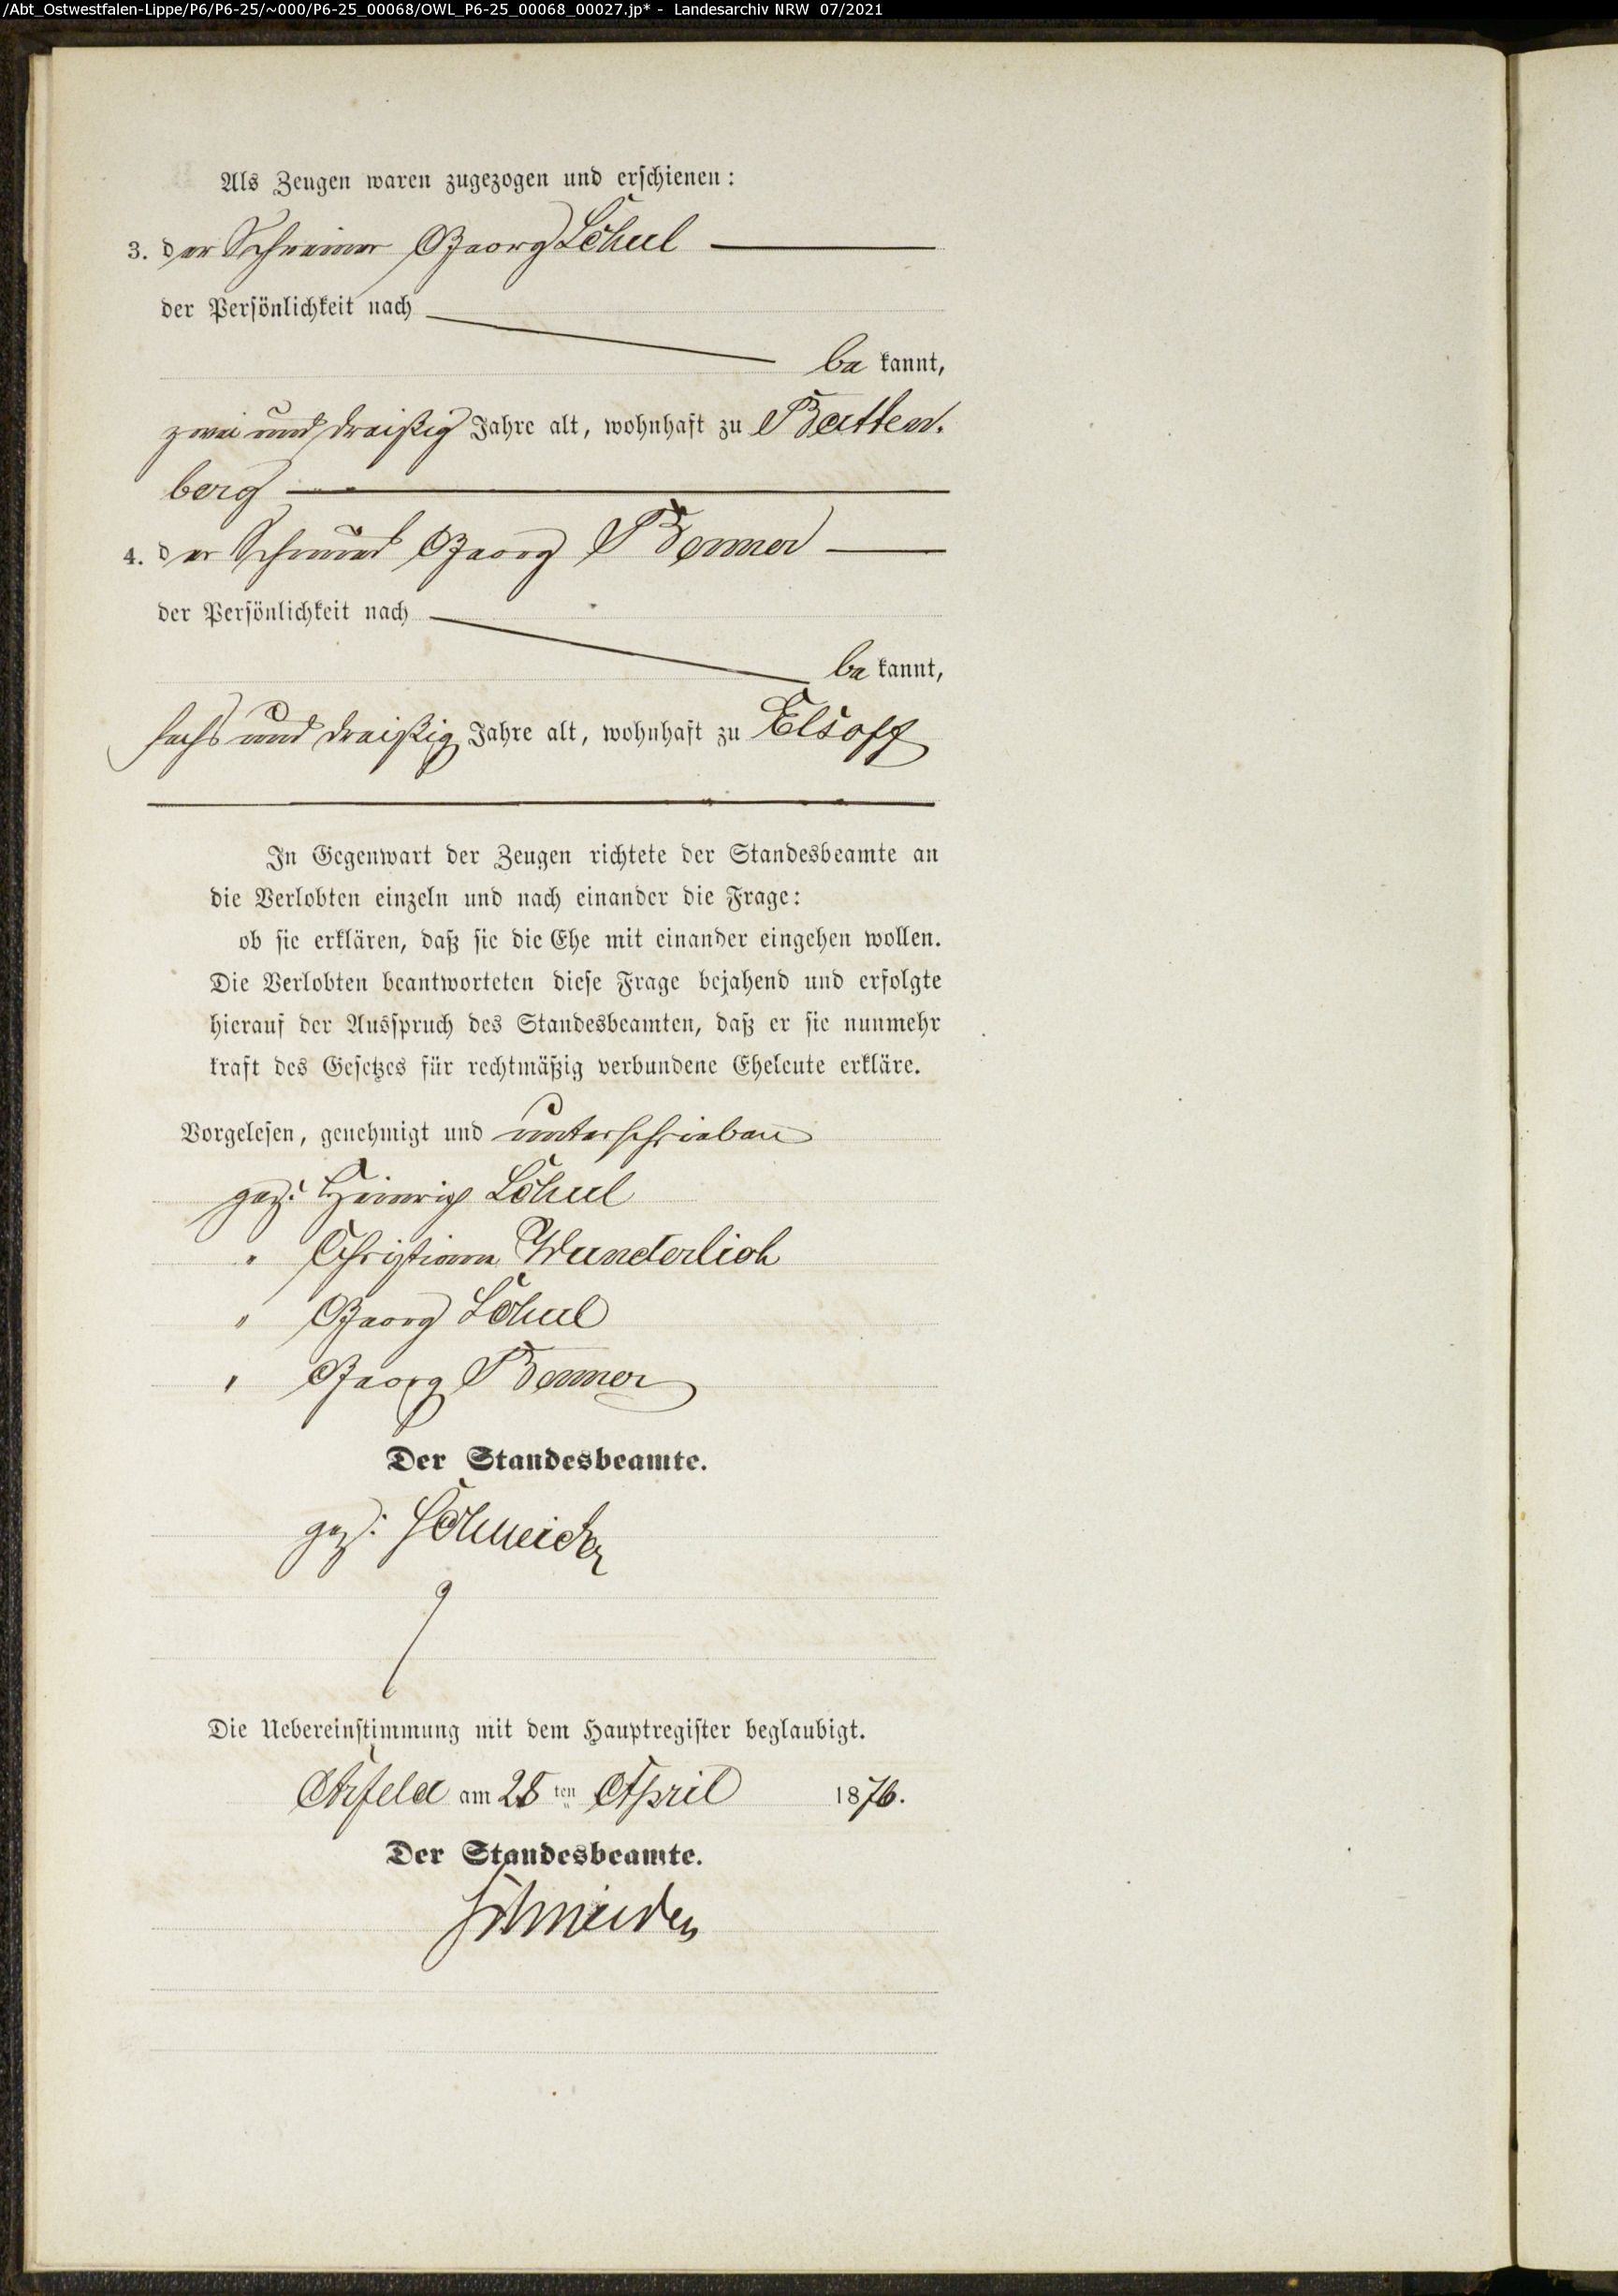 /Abt_Ostwestfalen-Lippe/P6/P6-25/~000/P6-25_00068/OWL_P6-25_00068_00027.jp* - Landesarchiv NRW 07/2021
Als Zeugen waren zugezogen und erschienen:
3. der Schreiner Georg
der Persönlichkeit nach
be kannt,
zwei und dreißig Jahre alt, wohnhaft zu Batten-
berg
4. der Schmied Georg
der Persönlichkeit nach
be kannt,
sechs und dreißig Jahre alt, wohnhaft zu Elsoff
In Gegenwart der Zeugen richtete der Standesbeamte an
die Verlobten einzeln und nach einander die Frage:
ob sie erklären, daß sie die Ehe mit einander eingehen wollen.
Die Verlobten beantworteten diese Frage bejahend und erfolgte
hierauf der Ausspruch des Standesbeamten, daß er sie nunmehr
kraft des Gesetzes für rechtmäßig verbundene Eheleute erkläre.
Vorgelesen, genehmigt und unterschrieben
gez: Heinrich
" Christiane Wunderlich
" Georg
" Georg
Der Standesbeamte.
gez: Schneider
Die Uebereinstimmung mit dem Hauptregister beglaubigt.
Arfeld am 28 ten April 1876.
Der Standesbeamte.
Schneider